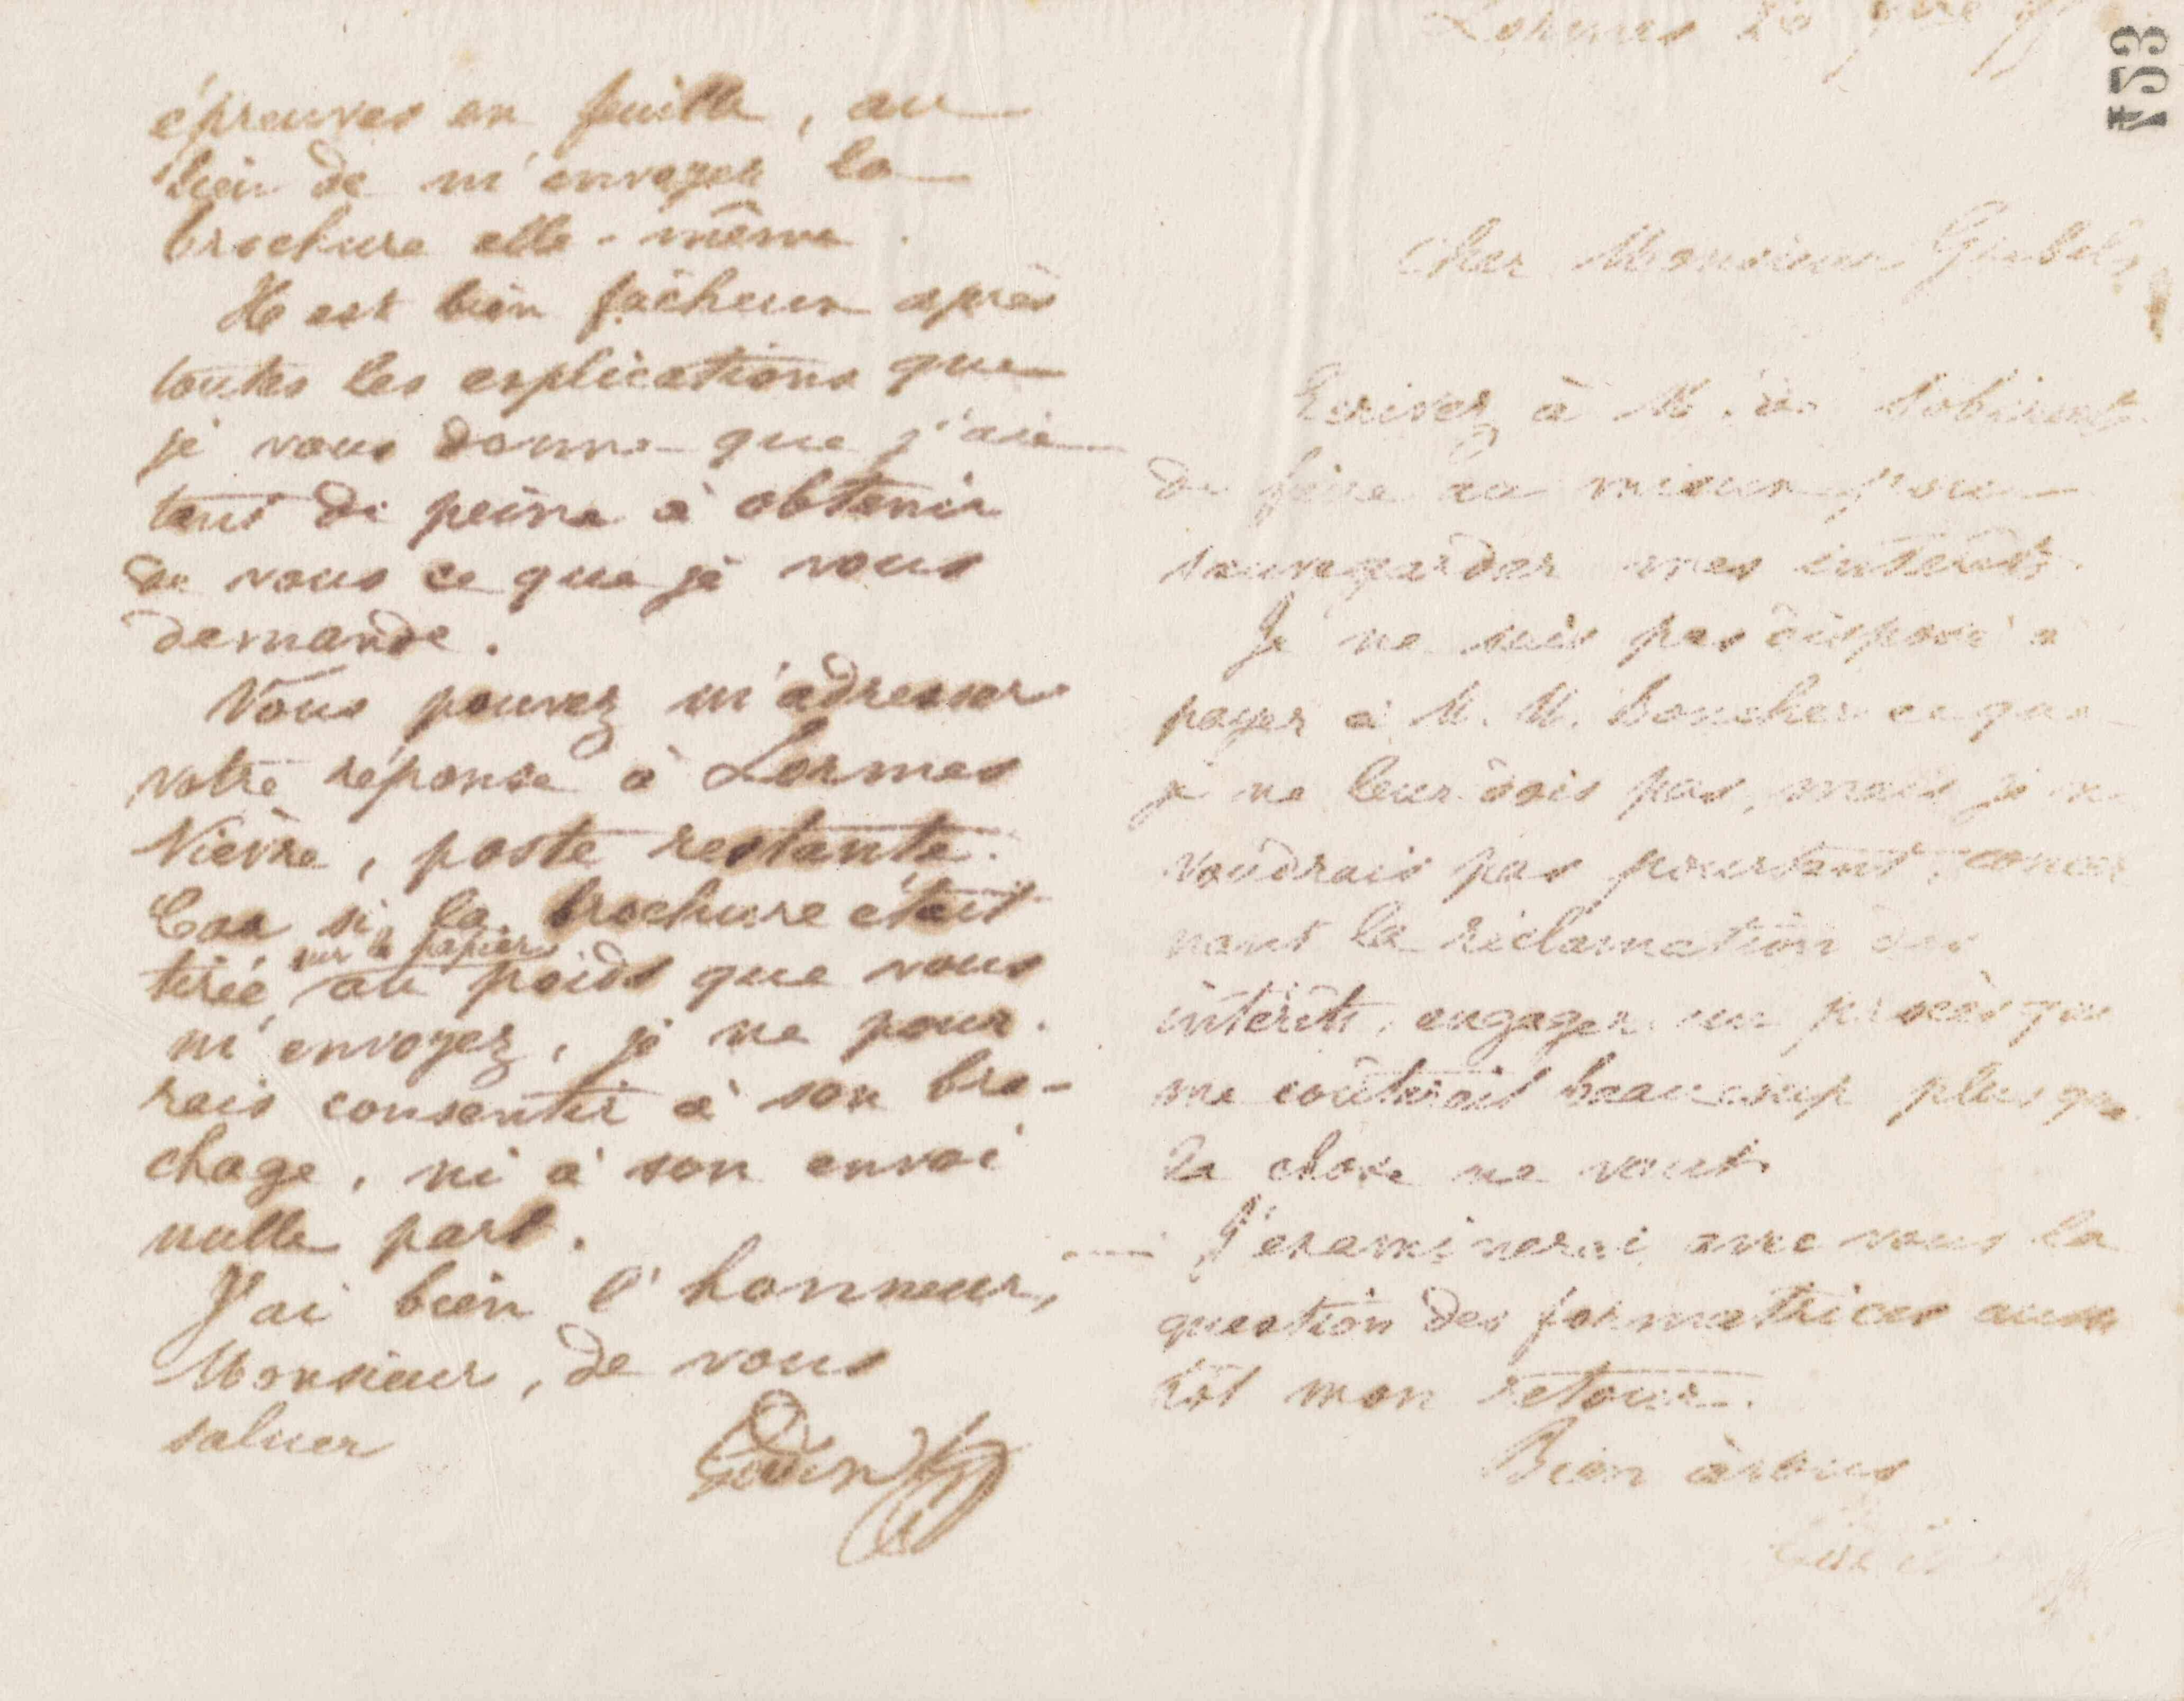 épreuves en feuille, au
lieu de m'envoyer la
brochure elle-même.
Il est bien fâcheux après
toutes les explications que
je vous donne que j'aie
tant de peine à obtenir
de vous ce que je vous
demande.
Vous pouvez m'adresser
votre réponse à Lormes
Nièvre, poste restante.
Car si la brochure était
sur le papier
tirée au poids que vous
m'envoyez, je ne pour-
rais consentir à son bro-
chage, ni à son envoi
nulle part.
J'ai bien l'honneur,
Monsieur, de vous
saluer
Godin
453
Lormes
Cher Monsieur
Ecrivez à M. de
de faire au mieux pour
sauvegarder mes intérêts.
Je ne suis pas disposé à
payer à M. M. Boucher ce que
je ne leur dois pas, mais je ne
voudrais pas pourtant, concer
nant la réclamation des
intérêts, engager un procès que
me coûterait beaucoup plus que
la chose ne vaut.
J'examinerai avec vous la
question des formatrices aussi
tôt mon retour.
Bien à vous